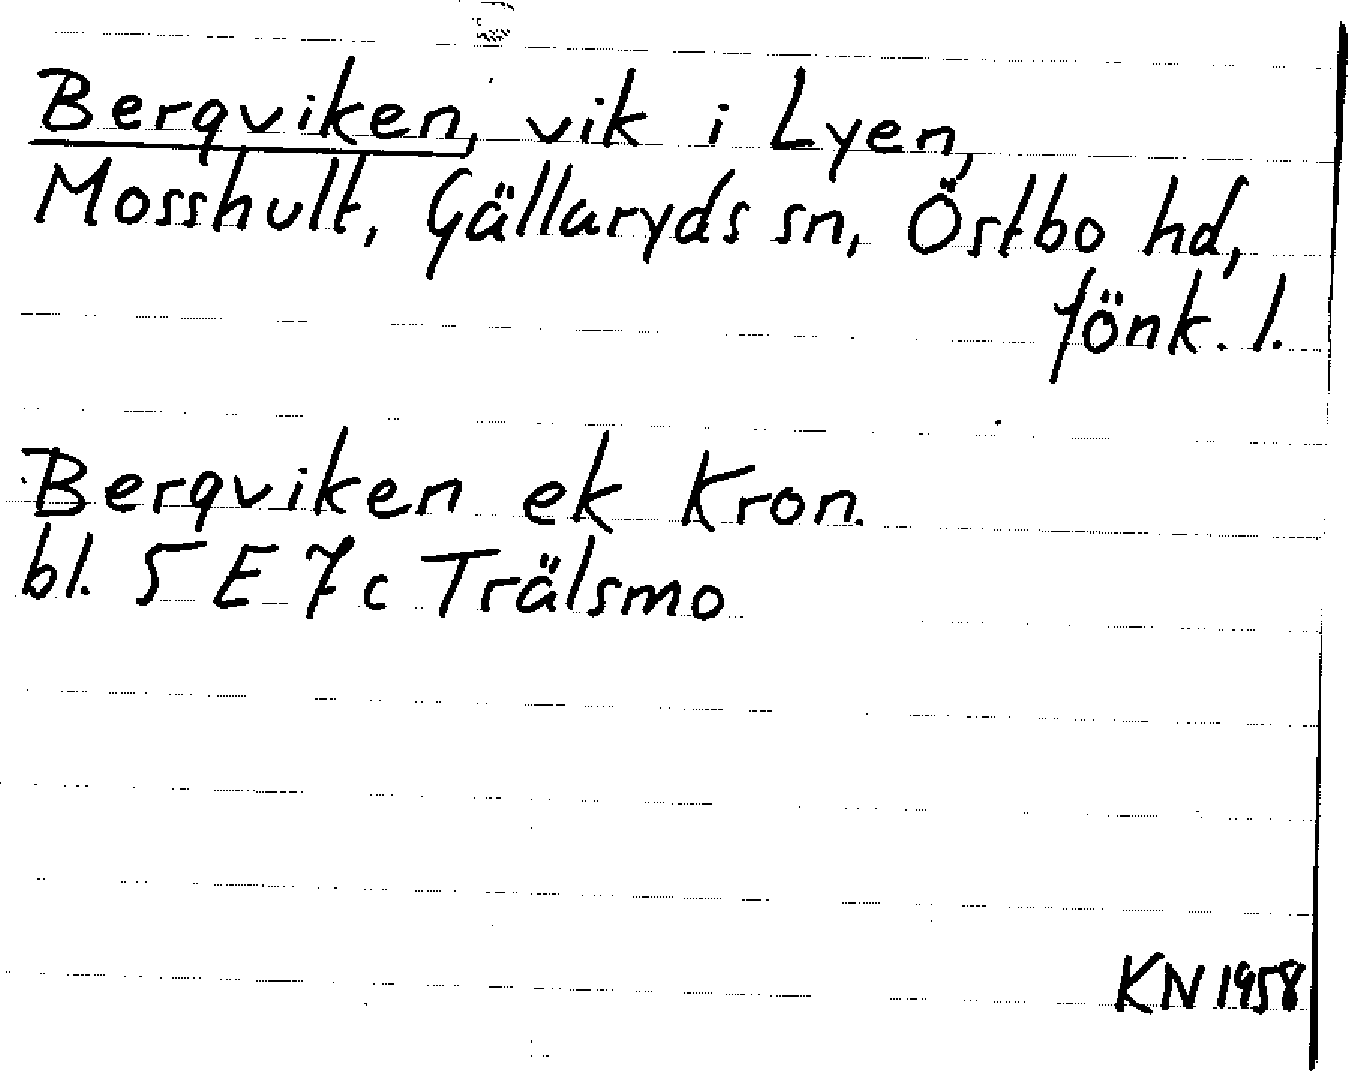 Bergviken, vik i Lyen,
Mosshult, Gällaryds sn, Östbo hd,
Jönk. l.
Bergviken ek Kron.
bl. 5 E 7 c Trälsmo
KN 1958